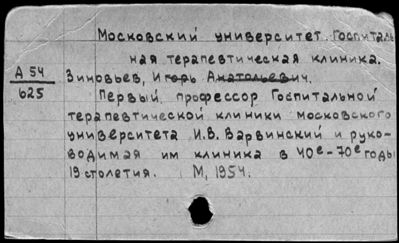 Московский университет. Госпиталь
ная терапевтическая клиника.
А 54
625
Зиновьев, Игорь Анатольевич.
Первый профессор Госпитальной
терапевтической клиники московского
университета И.В. Варвинский и руко-
водимая им клиника в 40е-70е годы
19 столетия. М, 1954.